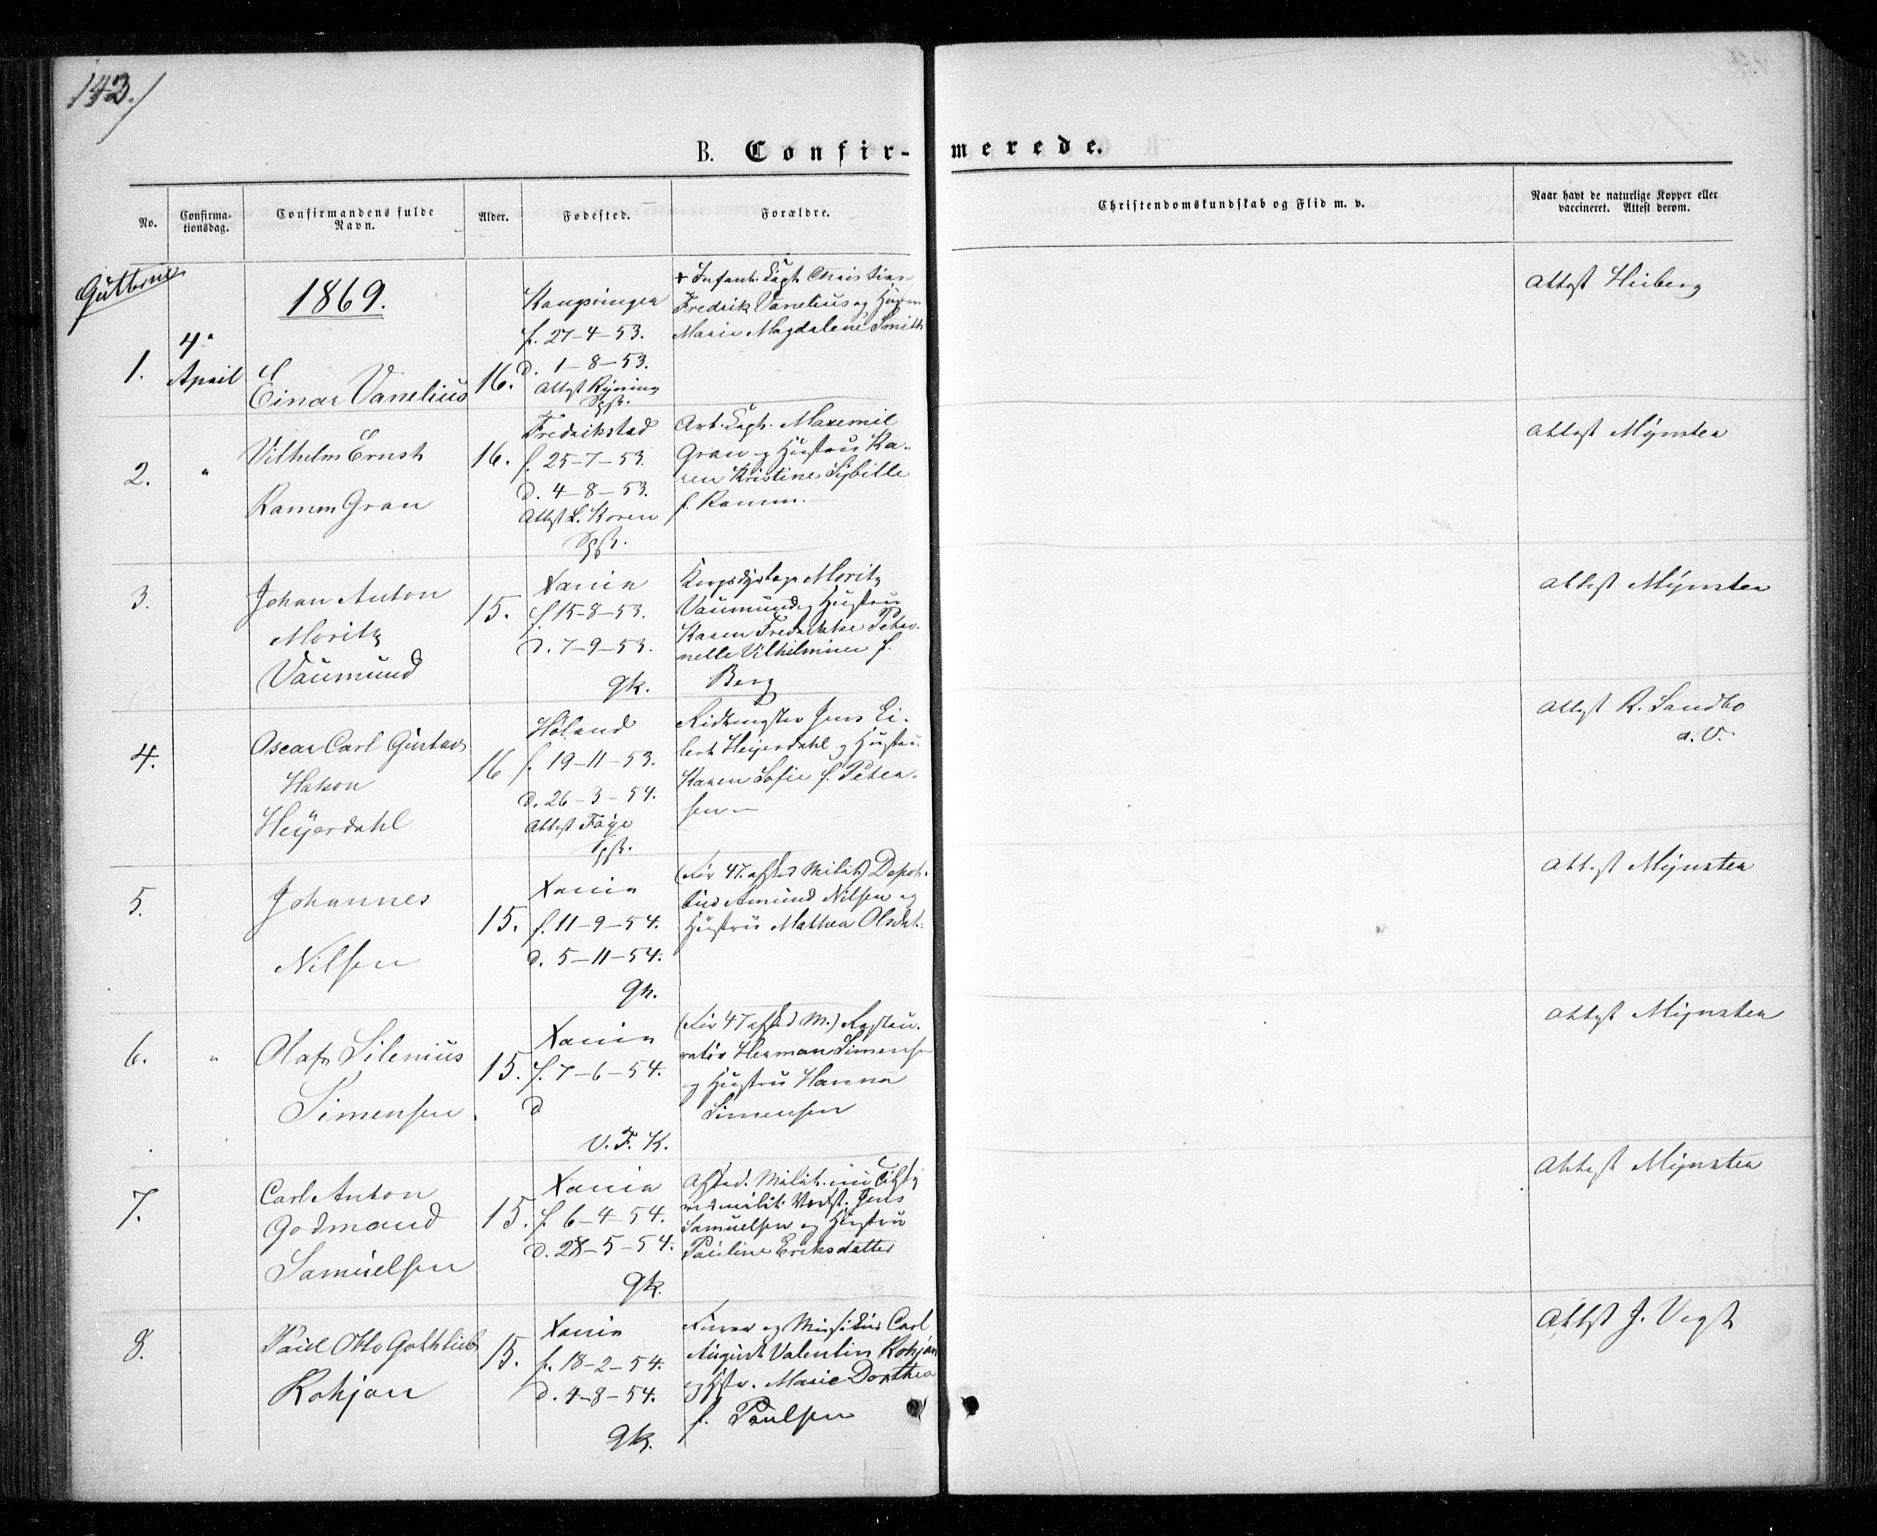 143.
B. Confir-merede.
No.
Confirma-
tionsdag.
Confirmandens fulde
Navn.
Alder.
Fødested.
Forældre.
Christendomskundskab og Flid m. v.
Naar havt de naturlige Kopper eller
vaccineret. Attest derom.
Gutterne
1869.
1.
4.
April
Einar Vanelius
16.
Kongsvinger
f. 27-4-53.
d. 1-8-53.
Attest Rýning
Spr.
+ Infant. Capt. Christian
Fredrik Vanelius og Hustru
Marie Magdalene Smith
Attest Heiberg
2.
"
Vilhelm Ernst
Ramm Gran
16.
Fredrikstad
f. 25-7-53.
d. 4-8-53.
Attest L. Koren
Spr.
Art. Capt. Maxemil
Gran og Hustru Ka-
ren Kristine Sÿbille
f. Ramm.
Attest Mÿnster
3.
Johan Anton
Moritz
Vaumund
15.
Xania
f. 15-8-53.
d. 7-9-53.
gk.
Moritz
Vaumund og Hustru
Karen Fredrikke Petro-
nelle Vilhelmine f.
Berg
Attest Mÿnster
4.
Oscar Carl Gustav
Hakon
Heÿerdahl
16
Høland
f. 19-11-53.
d. 26-3-54.
Attest Faÿe
Spr.
Ridtmester Jens Ei-
lert Heÿerdahl og Hustru
Karen Sofie f. Peter-
sen
Attest R. Sandbo
a. V.
5.
Johannes
Nilsen
15.
Xania
f. 11-9-54.
d. 5-11-54.
gk.
(Før 47. afsked Milit.) Depot-
Amund Nilsen og
Hustru Mathea Olsdat.
Attest Mÿnster
6.
"
Olaf Silenius
Simensen.
15.
Xania
f. 7-6-54.
d
V. F. K.
(Før 47 afsked M.) Restau-
ratør Herman Simensen
og Hustru Hanna
Simensen
Attest Mÿnster
7.
Carl Anton
Godmand
Samuelsen
15.
Xania
f. 6-4-54.
d. 28-5-54.
gk.
Afsked. Milit.
Jens
Samuelsen og Hustru
Pauline Eriksdatter
Attest Mÿnster
8.
Paul Otto Gotthlieb
Kohjon
15.
Xania
f. 18-2-54.
d. 4-8-54.
gk.
og Musikus Carl
August Valentin Kohjon
og Hstr. Marie Dorthea
f. Paulsen
Attest J. Vogt